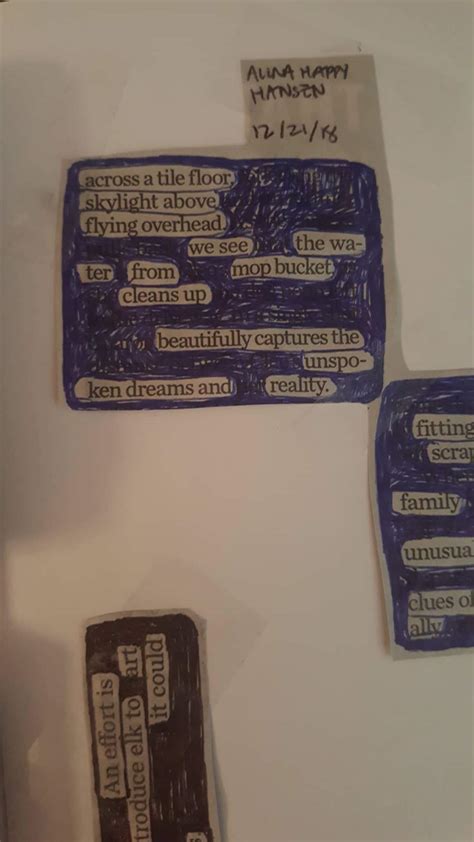 ALINA HAPPY
HANSEN
12/21/18
across a tile floor,
skylight above
flying overhead.
we see the wa-
ter from mop bucket
cleans up
beautifully captures the
unspo-
ken dreams and reality.
fitting
scrap
family
unusual
clues of
ally
An effort is
troduce elk to art
it could